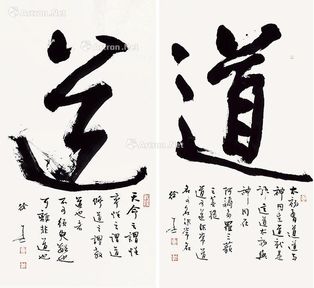 Artron.Net
Artron.Net
道
太初有道道與
神同在道就是
神這道太初與
神同在
阿耨多羅三藐
三菩提
道可道非常道
名可名非常名
徐
道
天命之謂性
率性之謂道
脩道之謂教
道也者
不可須臾離也
可離非道也
徐